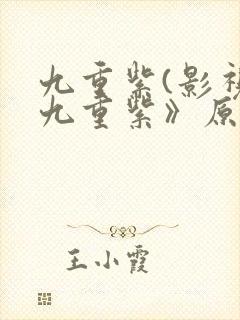 九重紫(影视
九重紫》原
王小霞